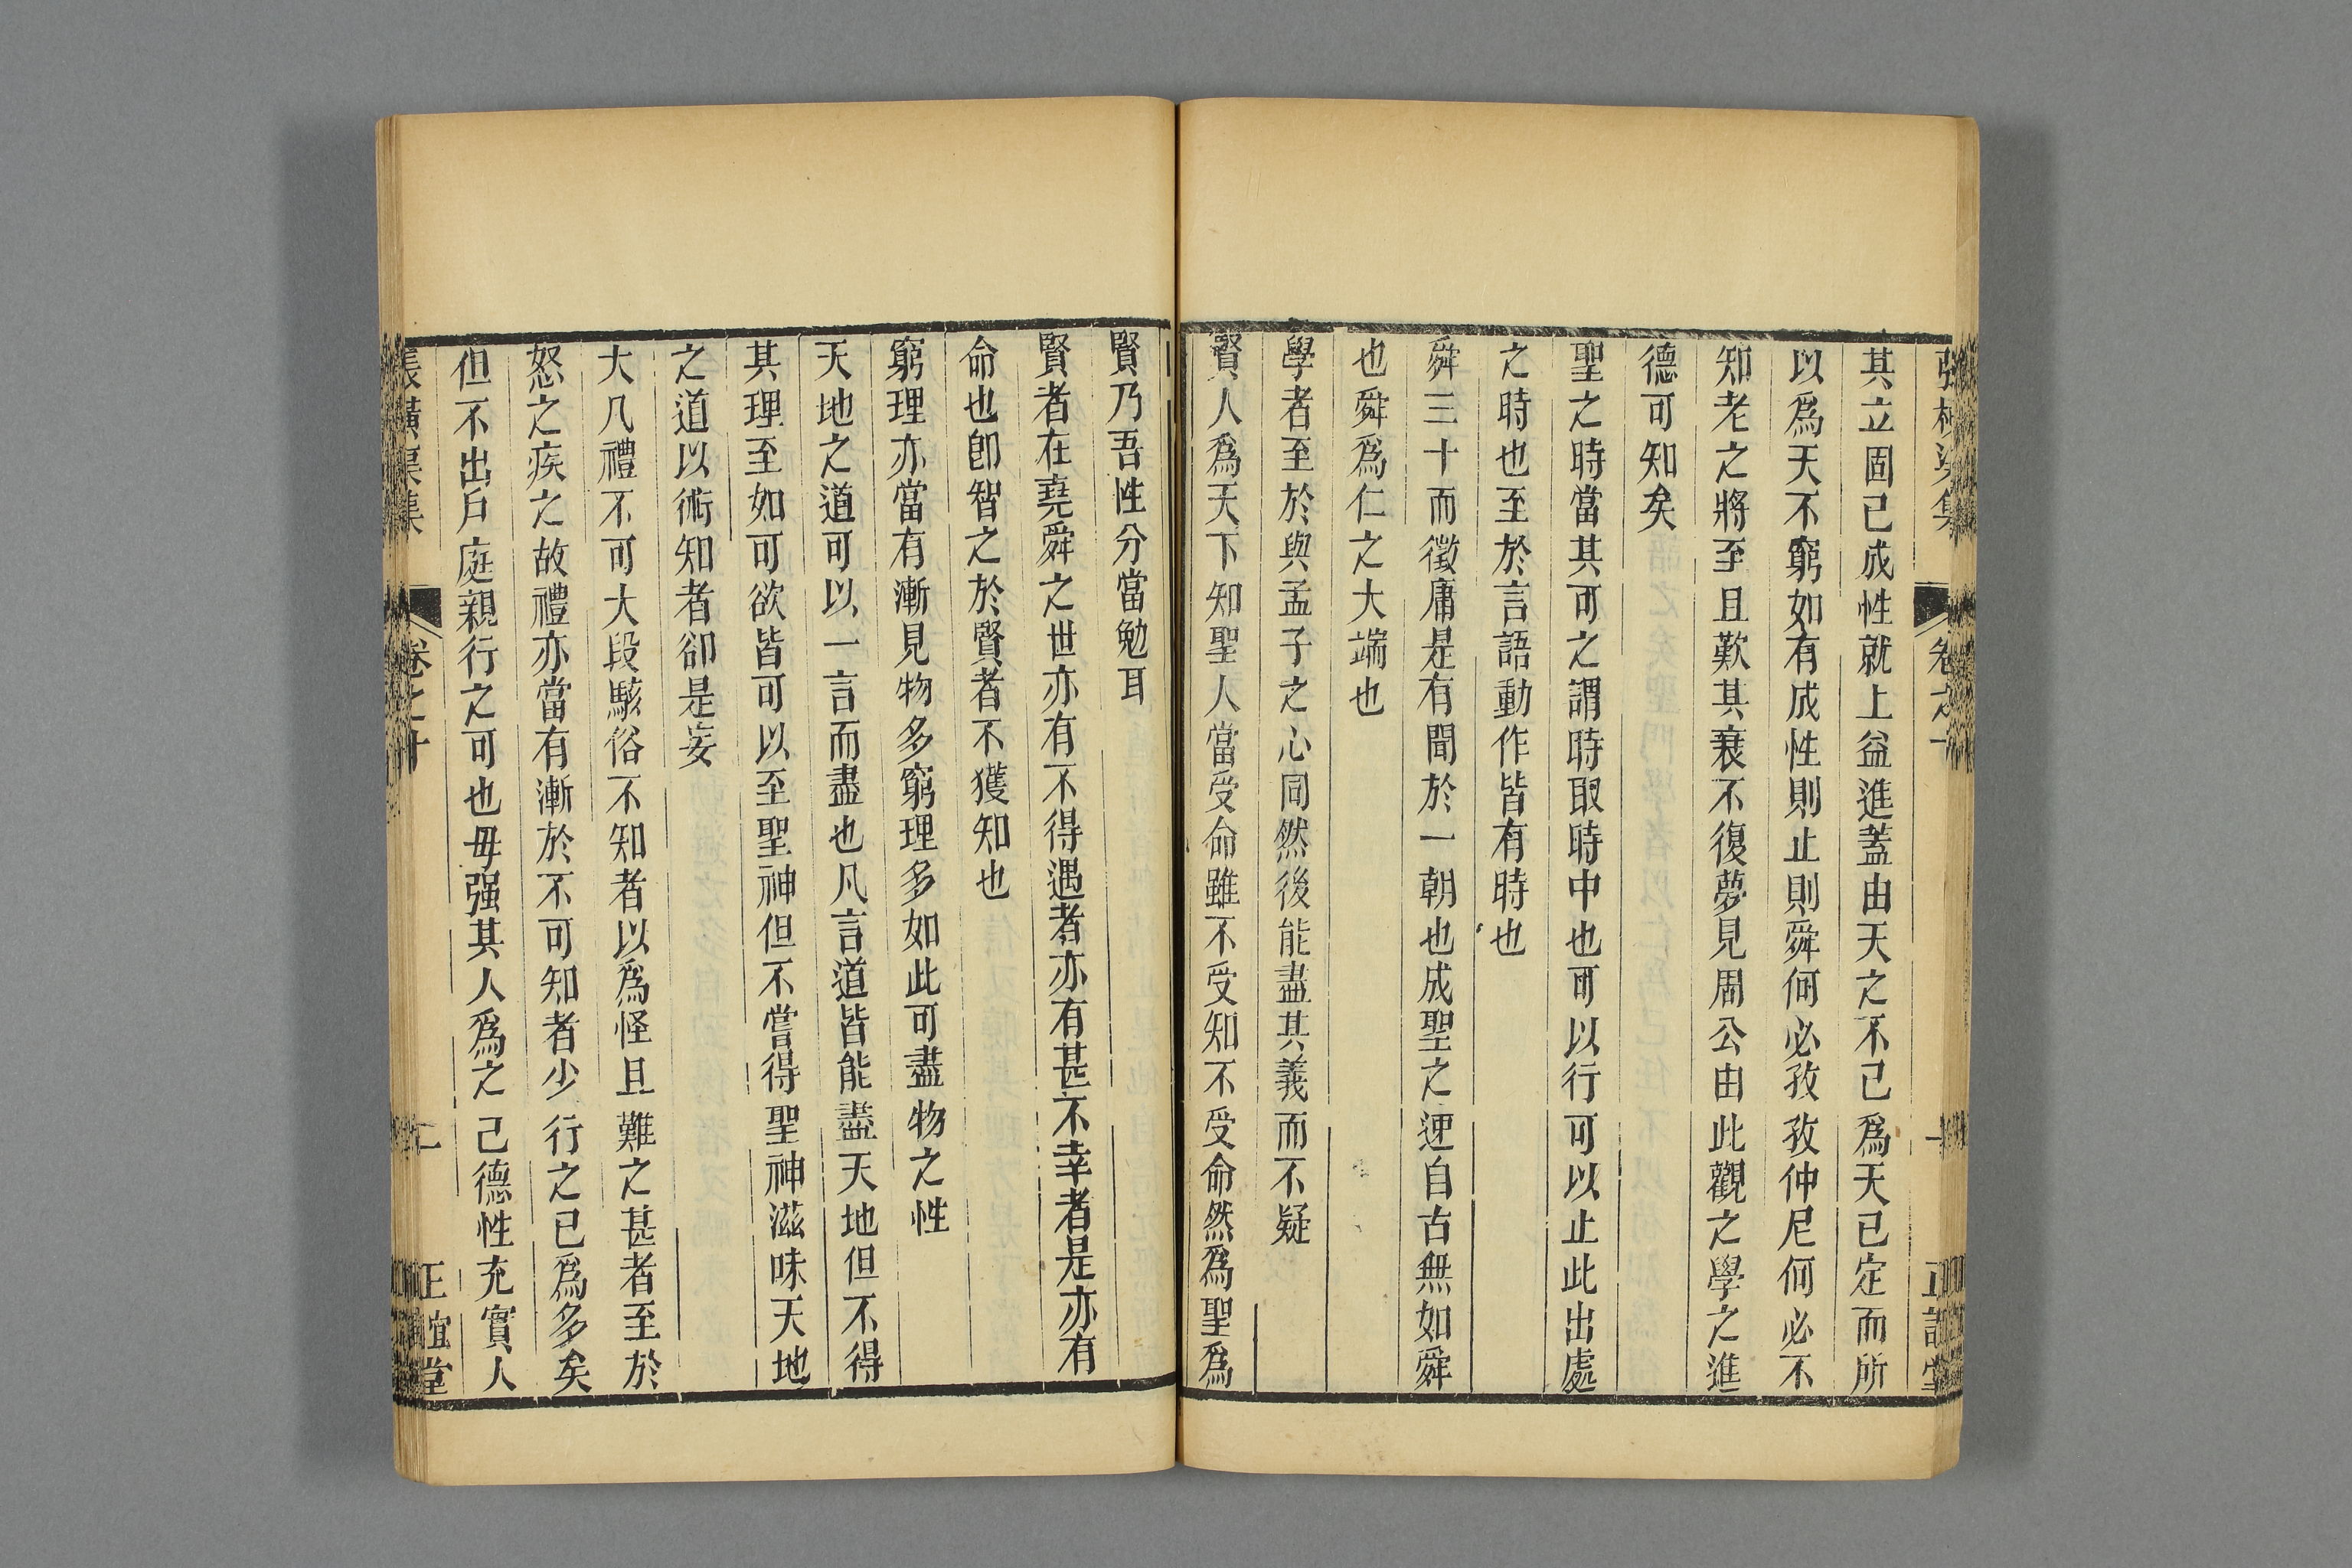 其立固已成性就上益進蓋由天之不已爲天已定而所
以爲天不窮如有成性則止則舜何必孜孜仲尼何必不
知老之將至且歎其衰不復夢見周公由此觀之學之進
德可知矣
聖之時當其可之謂時取時中也可以行可以止此出處
之時也至於言語動作皆有時也
舜三十而徵庸是有聞於一朝也成聖之速自古無如舜
也舜爲仁之大端也
學者至於與孟子之心同然後能盡其義而不疑
賢人爲天下知聖人當受命雖不受知不受命然爲聖爲
賢乃吾性分當勉耳
賢者在堯舜之世亦有不得遇者亦有甚不幸者是亦有
命也卽智之於賢者不獲知也
窮理亦當有漸見物多窮理多如此可盡物之性
天地之道可以一言而盡也凡言道皆能盡天地但不得
其理至如可欲皆可以至聖神但不嘗得聖神滋味天地
之道以術知者卻是妄
大凡禮不可大段駭俗不知者以爲怪且難之甚者至於
怒之疾之故禮亦當有漸於不可知者少行之已爲多矣
但不出戶庭親行之可也毋强其人爲之己德性充實人
張橫渠集 卷之十 二 正誼堂